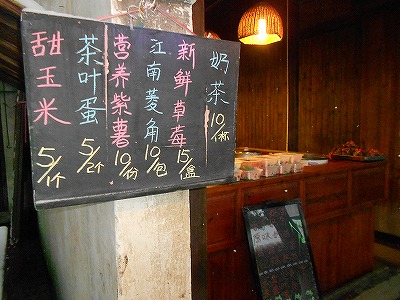 甜玉米 5/1个
茶叶蛋 5/2个
营养紫薯 10/份
江南菱角 10/包
新鲜草莓 15/盒
奶茶 10/杯